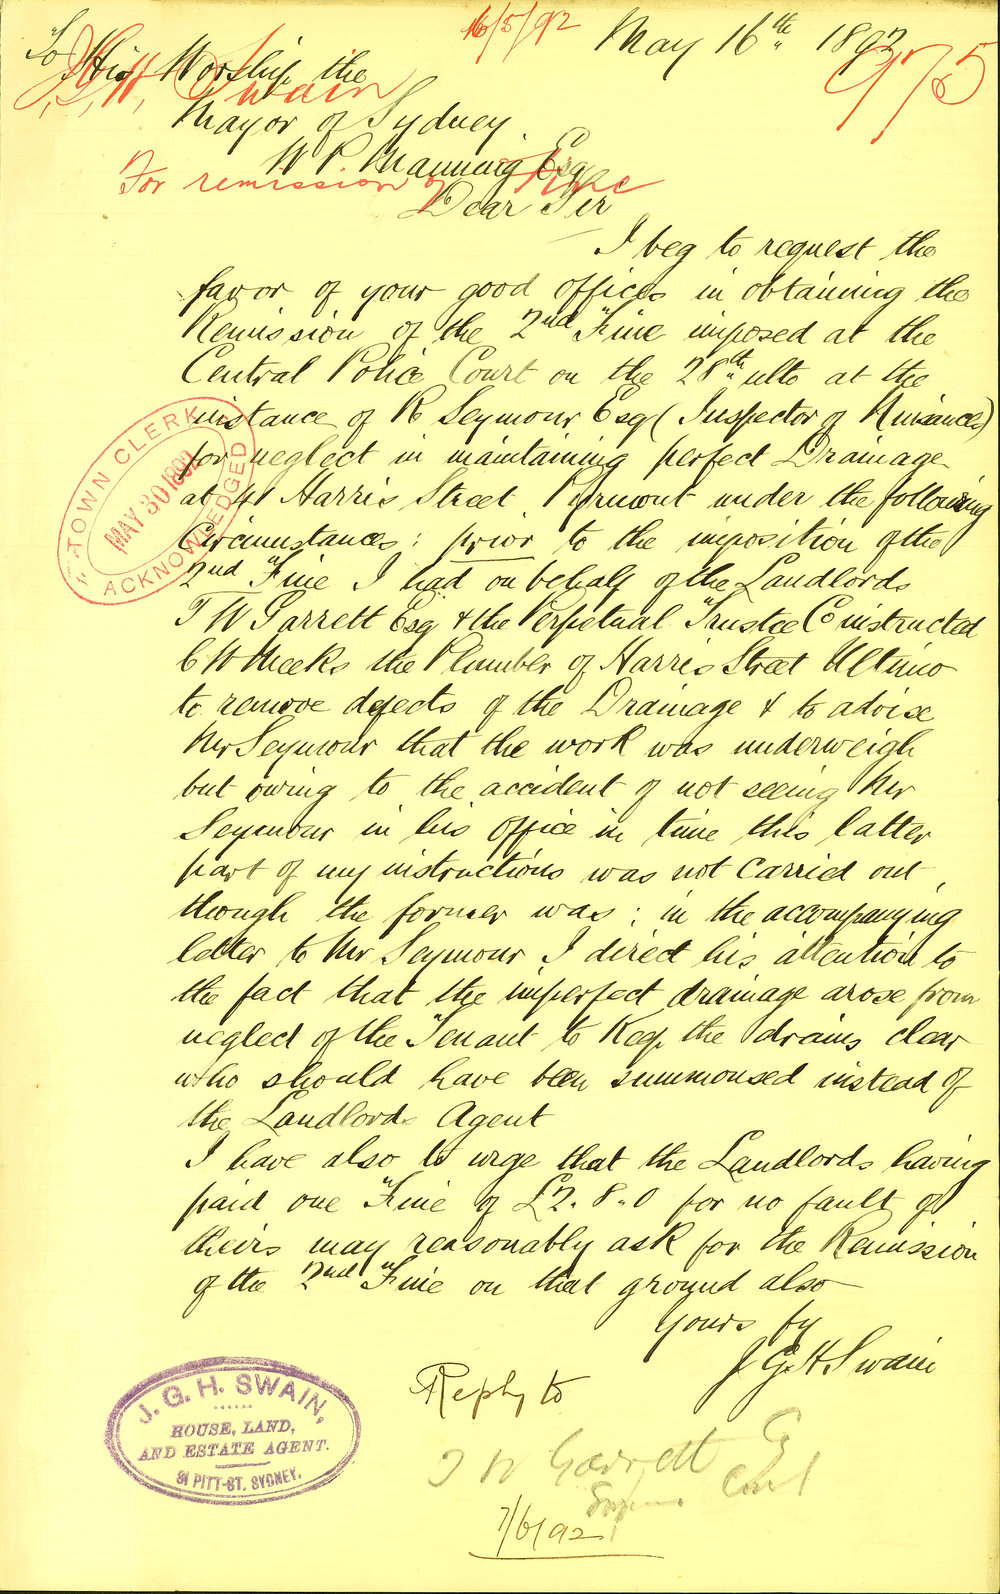 16/5/92
May 16th. 1892
975
To His Worship the
J. G. H. Swain
Mayor of Sydney.
W P Manning Esq
For remission of Fine
Dear Sir
I beg to request the
favor of your good offices in obtaining the
Remission of the 2nd Fine imposed at the
Central Police Court on the 28th ulto at the
instance of R Seymour Esq (Inspector of Nuisances)
for neglect in maintaining perfect Drainage
at 41 Harris Street Pyrmont under the following
Circumstances: prior to the imposition of the
2nd Fine I had on behalf of the Landlords
T W Garrett Esq & the Perpetual Trustee Co instructed
C W Meeks the Plumber of Harris Street Ultimo
to remove defects of the Drainage & to advise
Mr Seymour that the work was underweigh
but owing to the accident of not seeing Mr
Seymour in his office in time this latter
part of my instructions was not carried out,
though the former was; in the accompanying
letter to Mr Seymour I direct his attention to
the fact that the imperfect drainage arose from
neglect of the Tenant to Keep the drains clear
who should have been summonsed instead of
the Landlords Agent
I have also to urge that the Landlords having
paid one Fine of £2.8.0 for no fault of
theirs may reasonably ask for the Remission
of the 2nd Fine on that ground also
yours fy
J G H Swain
TOWN CLERK
MAY 30 1892
ACKNOWLEDGED
J. G. H. SWAIN,
HOUSE, LAND,
AND ESTATE AGENT.
91 PITT-ST. SYDNEY.
Reply to
T W Garrett Esq
Supreme Court
7/6/92